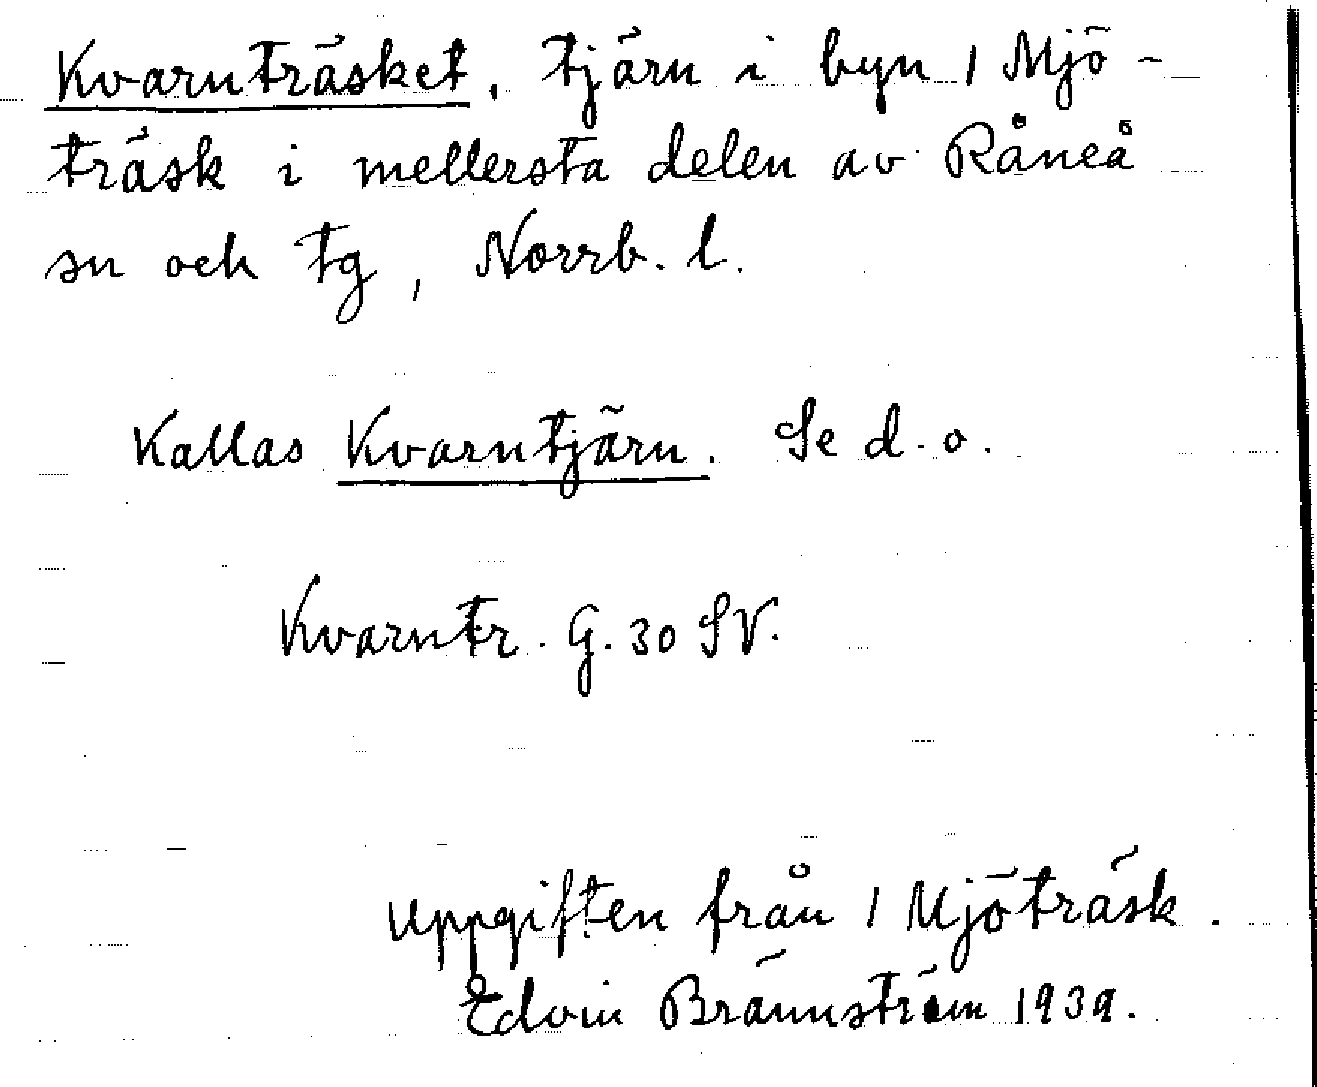 Kvarnträsket, tjärn i byn 1 Mjö-
träsk i mellersta delen av Råneå
sn och tg, Norrb. l.
Kallas Kvarntjärn. Se d. o.
Kvarntr. G. 30 SV.
Uppgiften från 1 Mjöträsk.
Edvin Brännström 1939.